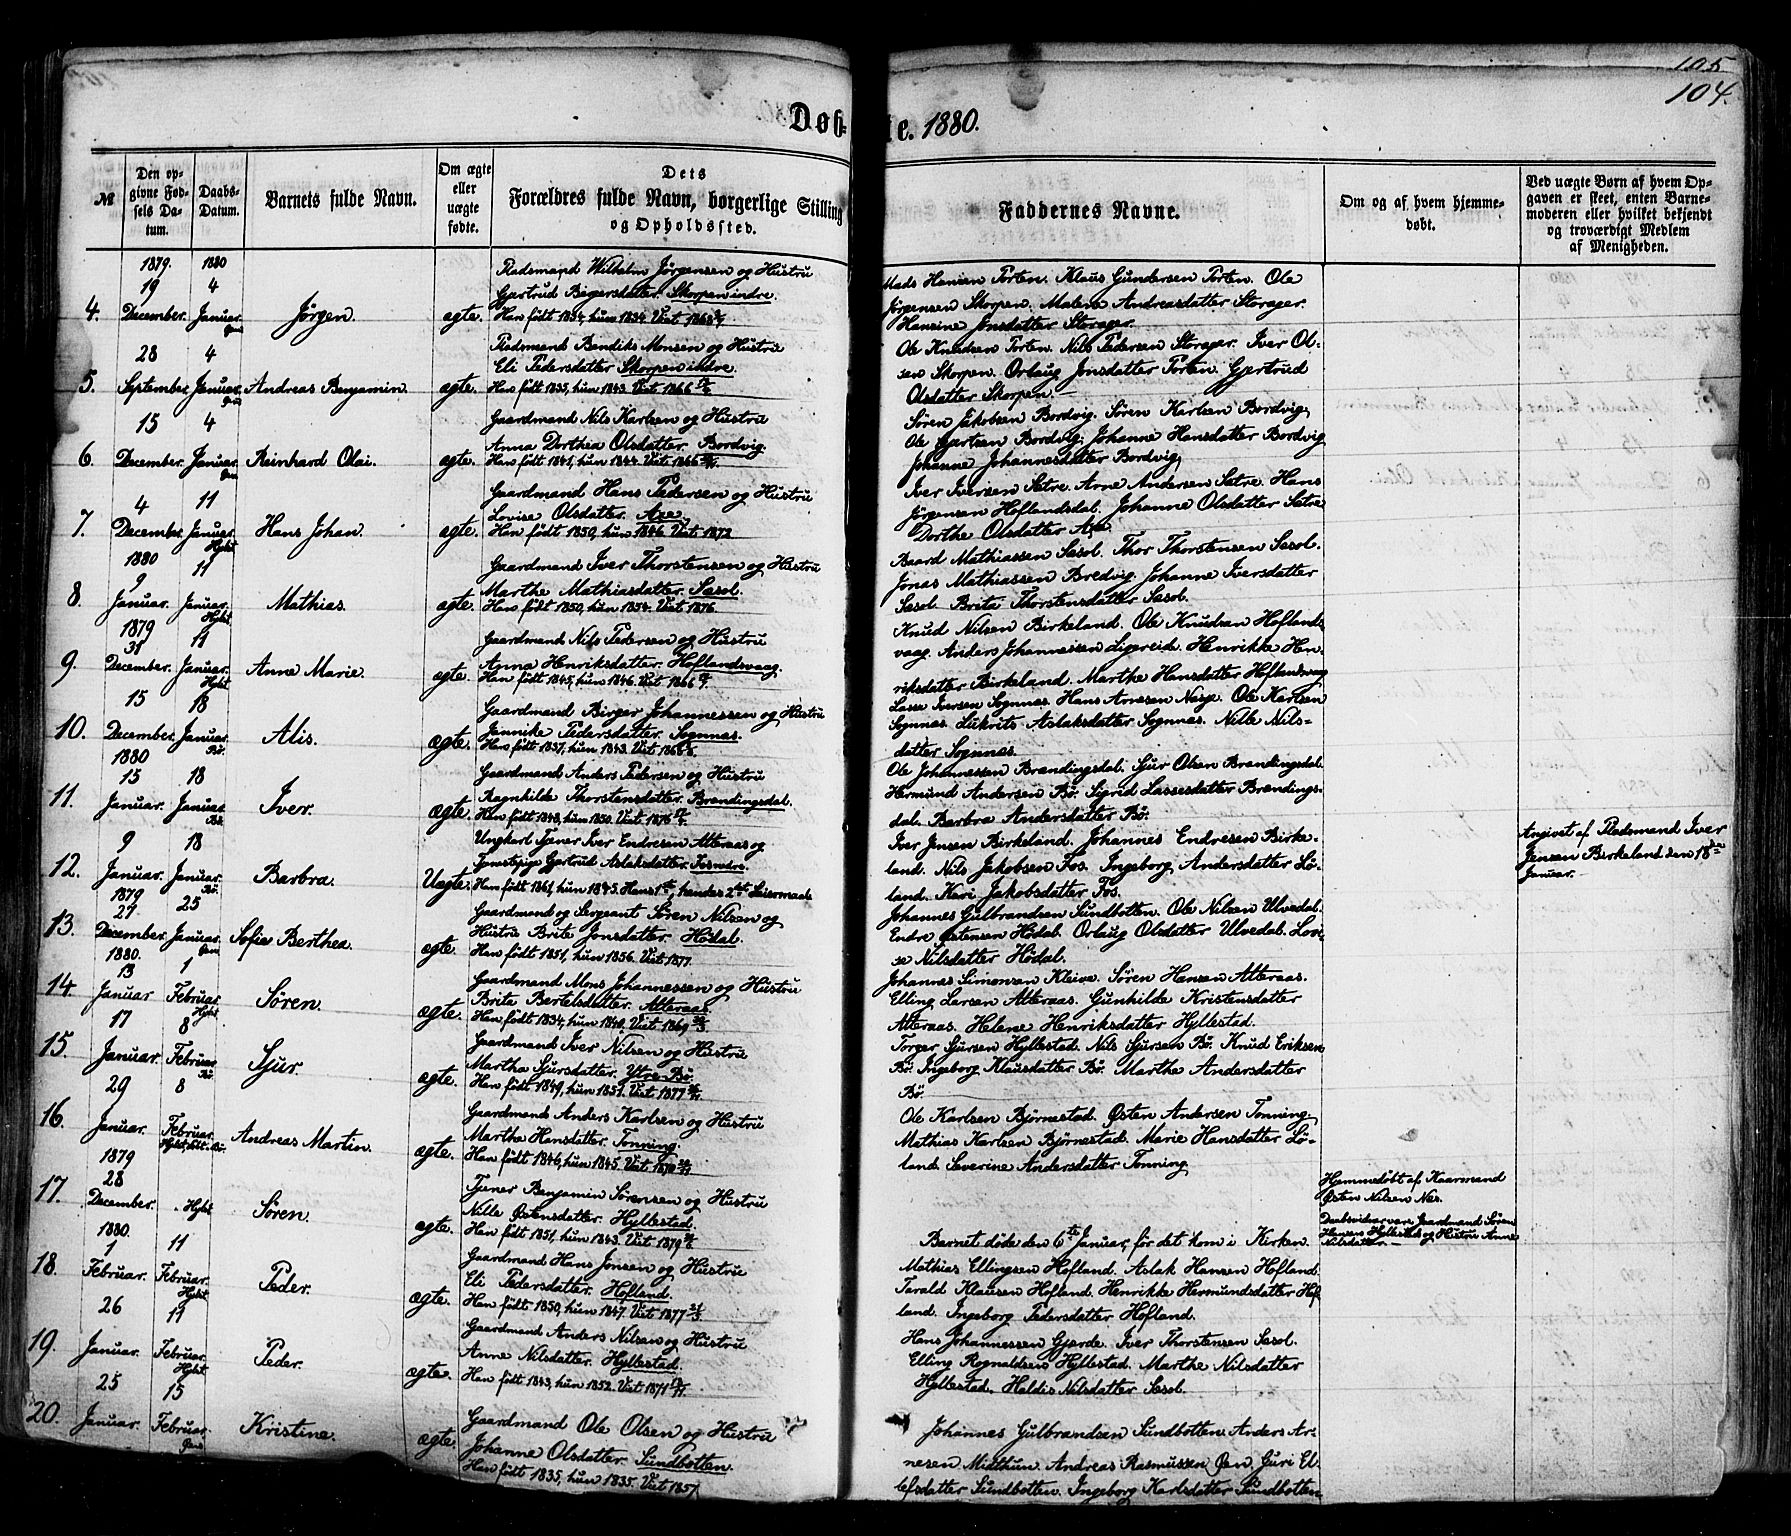 105
104.
Døb- te. 1880.
№
Den op-
givne Fød-
sels Da-
tum.
Daabs-
Datum.
Barnets fulde Navn.
Om ægte
eller
uægte
fødte.
Dets
Forældres fulde Navn, borgerlige Stilling
og Opholdssted.
Faddernes Navne.
Om og af hvem hjemme-
døbt.
Ved uægte Børn af hvem Op-
gaven er skeet, enten Barne-
moderen eller hvilket bekjendt
og troværdigt Medlem
af Menigheden.
1879. 1880
4. 19 December. 4 Januar. Jørgen. ægte.
Pladsmand Wilhelm Jørgensen og Hustru
Gjertrud Bøgersdatter. Skorpen indre.
Han født 1834, hun 1834. Viet 1868
Mads Hansen Torten. Klaus Gundersen Torten. Ole
Jørgensen Skorpen. Malene Andreasdatter Storager.
Hansine Jonsdatter Storager.
5. 28 September. 4 Januar. Andreas Benjamin. ægte.
Pladsmand Bendik Monsen og Hustru
Eli Pedersdatter Skorpen indre.
Han født 1835, hun 1843. Viet 1866
Ole Knudsen Torten. Nils Pedersen Storager. Iver Ol-
sen Skorpen. Orlaug Jonsdatter Torten. Gjertrud
Olsdatter Skorpen.
6. 15 December. 4 Januar. Reinhard Olai. ægte.
Gaardmand Nils Karlsen og Hustru
Anna Dorthea Olsdatter. Bordvig.
Han født 1841, hun 1844. Viet 1866
Søren Jakobsen Bordvig. Søren Karlsen Bordvig,
Ole Gjertsen Bordvig, Johanne Hansdatter Bordvig
Johanne Johannesdatter Bordvig,
7. 4 December. 11 Januar. Hyllst Hans Johan. ægte.
Gaardmand Hans Pedersen og Hustru
Lovise Olsdatter. Aae.
Han født 1850, hun 1846. Viet 1872
Iver Iversen Sætre. Arne Andersen Sætre. Hans
Jørgensen Hoflandsdal. Johanne Olsdatter Sætre
Dorthe Olsdatter Aae.
8. 1880 9 Januar. 11 Januar. Hyllst Mathias. ægte.
Gaardmand Iver Thorstensen og Hustru
Marthe Mathiasdatter. Sæsol.
Han født 1850, hun 1854. Viet 1876.
Baard Mathiassen Sæsol. Thor Thorstensen Sæsol.
Jonas Mathiassen Bredvig. Johanne Iversdatter
Sæsol. Brita Thorstensdatter Sæsol.
9. 1879 31 December. 11 Januar. Hyllst Anne Marie. ægte.
Gaardmand Nils Pedersen og Hustru
Anna Henriksdatter. Hoflandsvaag.
Han født 1845, hun 1846. Viet 1866
Knud Nilsen Birkeland. Ole Knudsen Hoflands-
vaag. Anders Johannessen Ligereid. Henrikke Hen-
riksdatter Birkeland. Marthe Hansdatter Hoflandsvaag
10. 15 December. 18 Januar. Bø. Alis. ægte.
Gaardmand Birger Johannessen og Hustru
Jannike Pedersdatter. Sognnæs.
Han født 1837, hun 1843. Viet 1868
Lasse Iversen Sognnæs. Hans Arnesen Nesje. Ole Karlsen
Sognnæs. Lukrits Aslaksdatter Sognnæs. Nille Nils-
datter Sognnæs.
11. 1880 15 Januar. 18 Januar. Bø. Iver. ægte.
Gaardmand Anders Pedersen og Hustru
Ragnhilde Thorstensdatter. Brændingsdal.
Han født 1848, hun 1850. Viet 1876
Ole Johannessen Brændingsdal. Sjur Olsen Brændingsdal.
Hermund Andersen Bø. Sigrid Lassesdatter Brændings-
dal. Barbra Andersdatter Bø.
12. 9 Januar. 18 Januar. Bø. Barbra. Uægte.
Ungkarl Tjener Iver Endresen Atteraas og
Tjenstepige Gjertrud Aslaksdatter
Han født 1861, hun 1843. Hans 1ste, hendes 2det Leiermaal
Iver Jensen Birkeland. Johannes Endresen Birke-
land. Nils Jakobsen Fos. Ingeborg Andersdatter Lø-
land. Kari Jakobsdatter Fos.
Angivet af Pladsmand Iver
Jensen Birkeland den 18de
Januar.
13. 1879 27 December. 25 Januar. Sofie Berthea. ægte.
Gaardmand og Sergeant Søren Nilsen og
Hustru Brite Jonsdatter. Hødal.
Han født 1851, hun 1856. Viet 1877.
Johannes Gulbrandsen Sundbotten. Ole Nilsen Ulvedal.
Endre Østensen Hødal. Orlaug Olsdatter Ulvedal. Lovi-
se Nilsdatter Hødal.
14. 1880. 13 Januar 1 Februar. Hyllst Søren. ægte.
Gaardmand Mons Johannessen og Hustru
Brita Bertelsdatter. Atteraas.
Han født 1834, hun 1840. Viet 1869
Johannes Simonsen Kleiva. Søren Hansen Atteraas.
Elling Larsen Atteraas. Gunhilde Kristensdatter
Atteraas. Helene Henriksdatter Hyllestad.
15. 17 Januar. 8 Februar. Bø. Sjur. ægte.
Gaardmand Iver Nilsen og Hustru
Martha Sjursdatter. Ytre-Bø.
Han født 1849, hun 1851. Viet 1877
Torger Sjursen Hyllestad. Nils Sjursen Bø. Knud Eriksen
Bø. Ingeborg Klausdatter Bø. Marthe Andersdatter
Bø.
16. 29 Januar. 8 Februar. Andreas Martin. ægte.
Gaardmand Anders Karlsen og Hustru
Martha Hansdatter. Tonning.
Han født 1846, hun 1845. Viet 1870
Ole Karlsen Bjørnestad. Østen Andersen Tonning.
Mathias Karlsen Bjørnestad. Marie Hansdatter Lø-
land. Severine Andersdatter Tonning.
17. 1879 28 December. Hyllst Søren. ægte.
Tjener Benjamin Sørensen og Hustru
Nille Østensdatter. Hyllestad.
Han født 1851, hun 1843. Viet 1879
Barnet døde den 6te Januar, før det kom i Kirken.
Hjemmedøbt af Kaarmand
Østen Nilsen Nes.
Daabsvidner vare Gaardmand Søren
Hansen Hyllestad og Hustru Anne
Nilsdatter.
18. 1880. 1 Februar. 11 Februar. Hyllst Peder. ægte.
Gaardmand Hans Jonsen og Hustru
Eli Pedersdatter. Hofland.
Han født 1850, hun 1847. Viet 1877
Mathias Ellingsen Hofland. Aslak Hansen Hofland.
Tarald Klausen Hofland. Henrikke Hermundsdatter Hof-
land. Ingeborg Pedersdatter Hofland.
19. 26 Januar. 11 Februar. Hyllst Peder. ægte.
Gaardmand Anders Nilsen og Hustru
Anne Nilsdatter. Hyllestad.
Han født 1843, hun 1852. Viet 1871
Hans Johannessen Gjærde. Iver Thorstensen Sæsol.
Elling Rognaldsen Hyllestad. Marthe Nilsdatter
Hyllestad. Haldis Nilsdatter Sæsol.
20. 25 Januar. 15 Februar. Kristine. ægte.
Gaardmand Ole Olsen og Hustru
Johanne Olsdatter. Sundbotten.
Han født 1835, hun 1835. Viet 1857
Johannes Gulbrandsen Sundbotten. Anders Ar-
nesen Midthun. Andreas Rasmussen Øen. Guri El-
lefsdatter Sundbotten. Ingeborg Karlsdatter Sundbotten.